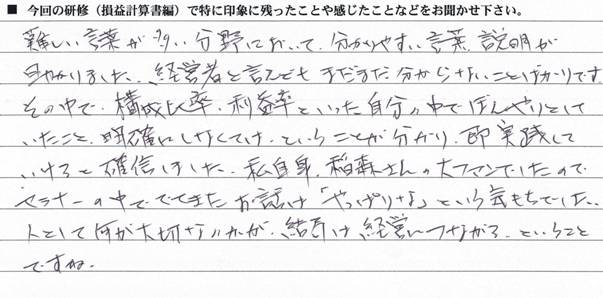 ■ 今回の研修（損益計算書編）で特に印象に残ったことや感じたことなどをお聞かせ下さい。
難しい言葉が多い分野において、分かりやすい言葉、説明が
助かりました。経営者と言えどもまだまだ分からないことばかりです
その中で、構成比率、利益率といった自分の中でぼんやりとして
いたこと、明確にしなくては、ということが分かり、即実践して
いけると確信しました。私自身、稲森さんの大ファンでしたので
セミナーの中ででてきたお話は「やっぱりな」という気もちでした。
人として何が大切なのかが、結局は経営につながる、ということ
ですね。